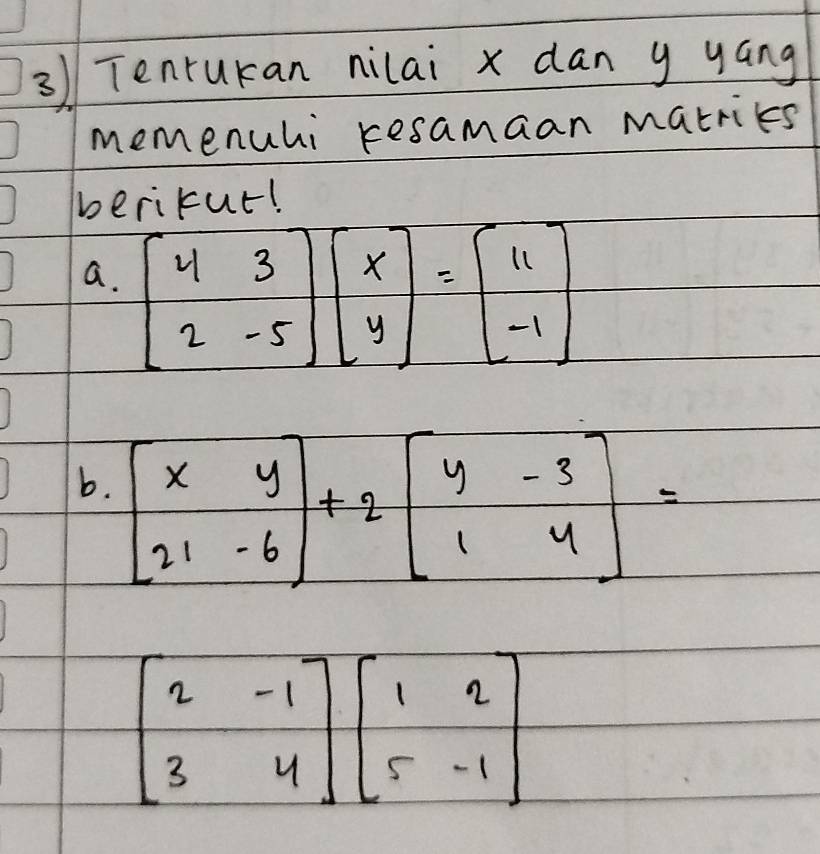 3). Tentukan nilai x dan y yang
memenuhi kesamaan matriks
berikut!
a. [4 3] [x] = [11]
[2 -5] [y] [-1]
b. [x y] + 2 [y -3] =
[21 -6] [1 4]
[2 -1] [1 2]
[3 4] [5 -1]